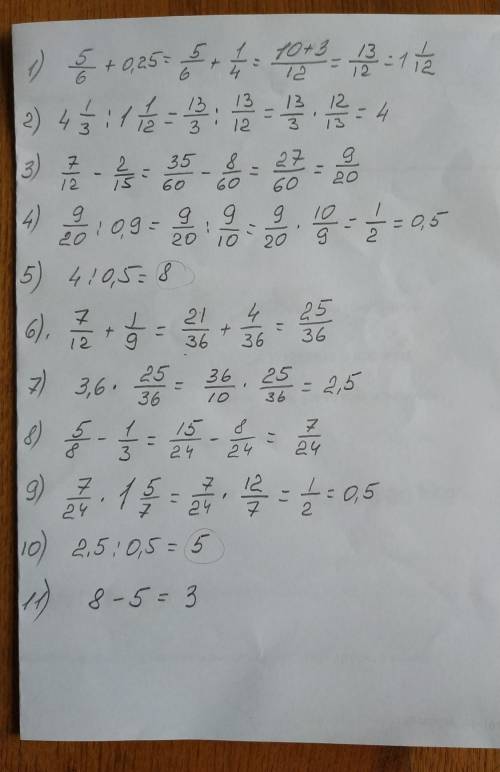 1) 5/6 + 0,25 = 5/6 + 1/4 = 10+3/12 = 13/12 = 1 1/12
2) 4 1/3 : 1 1/12 = 13/3 : 13/12 = 13/3 · 12/13 = 4
3) 7/12 - 2/15 = 35/60 - 8/60 = 27/60 = 9/20
4) 9/20 : 0,9 = 9/20 : 9/10 = 9/20 · 10/9 = 1/2 = 0,5
5) 4 : 0,5 = 8
6). 7/12 + 1/9 = 21/36 + 4/36 = 25/36
7) 3,6 · 25/36 = 36/10 · 25/36 = 2,5
8) 5/8 - 1/3 = 15/24 - 8/24 = 7/24
9) 7/24 · 1 5/7 = 7/24 · 12/7 = 1/2 = 0,5
10) 2,5 : 0,5 = 5
11) 8 - 5 = 3